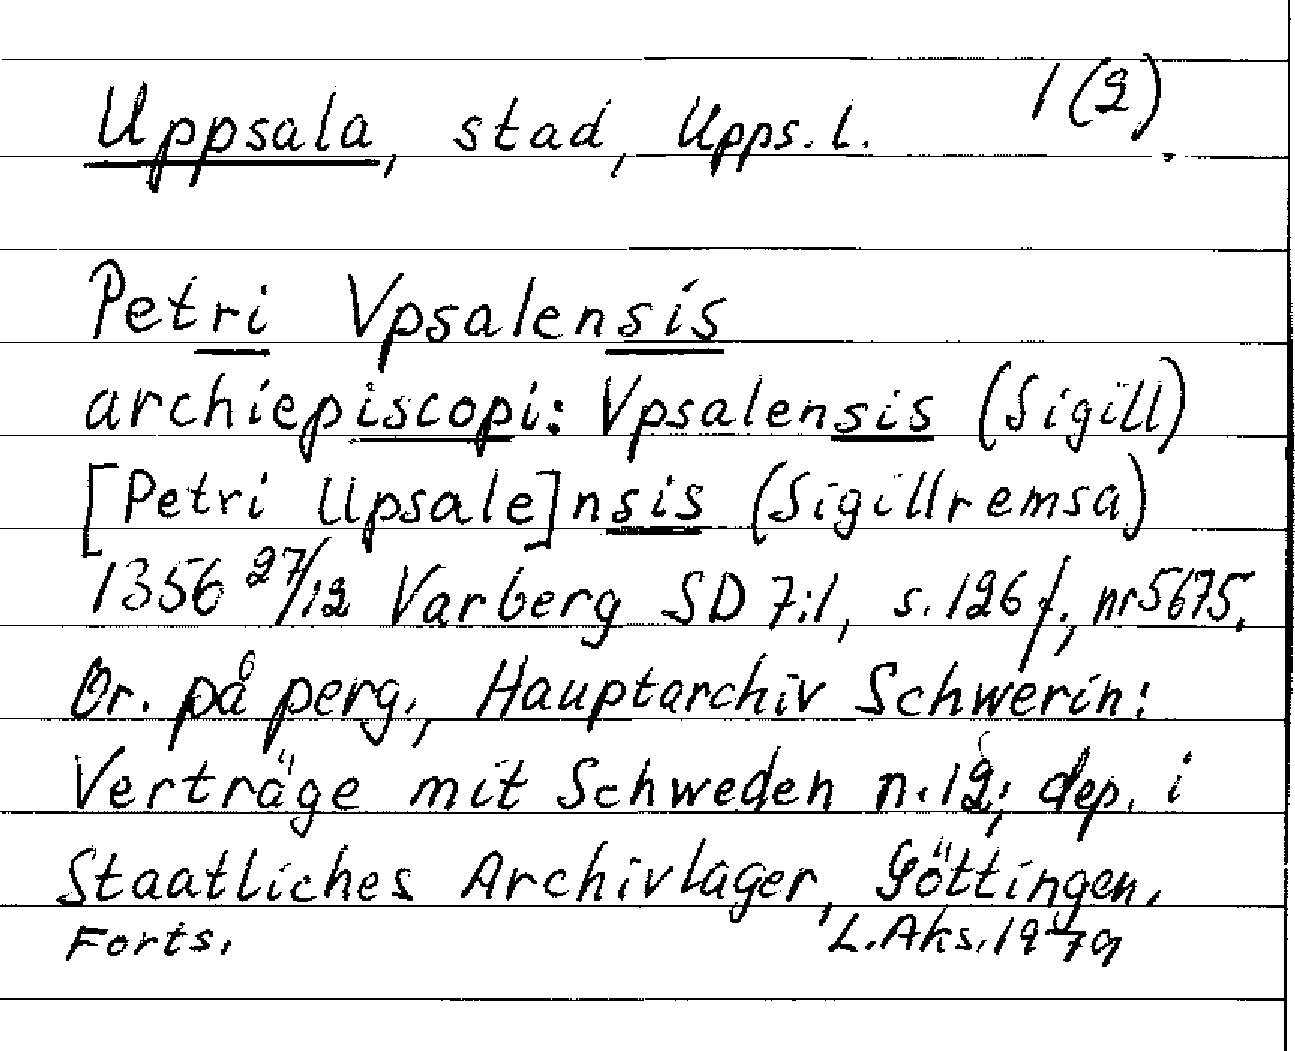 Uppsala, stad, Upps. l. 1 (2).
Petri Vpsalensis
archiepiscopi: Vpsalensis (Sigill)
[Petri Upsale]nsis (Sigillremsa)
1356 27/12 Varberg SD 7:1, s. 126 f., nr 5675.
Or. på perg., Hauptarchiv Schwerin:
Verträge mit Schweden n. 12; dep. i
Staatliches Archivlager, Göttingen.
Forts. L. Aks. 1979